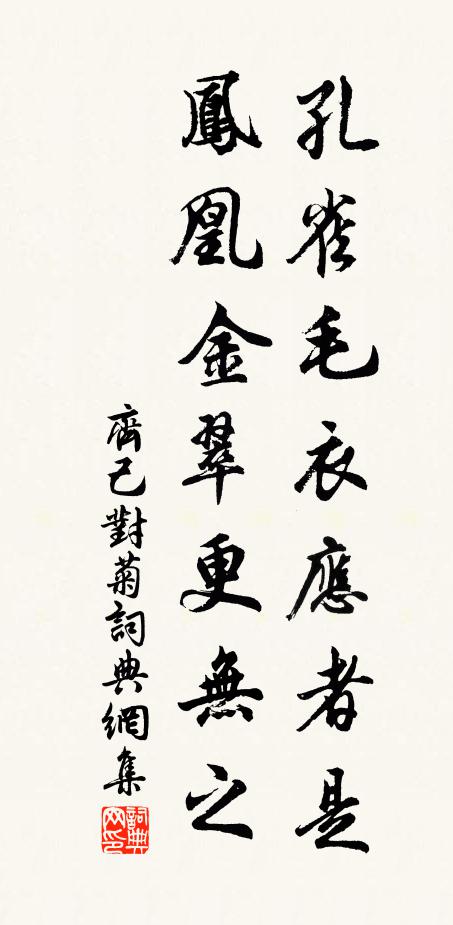 孔雀毛衣應者是
鳳凰金翠更無之
齊己對菊詞典網集
詞典網印